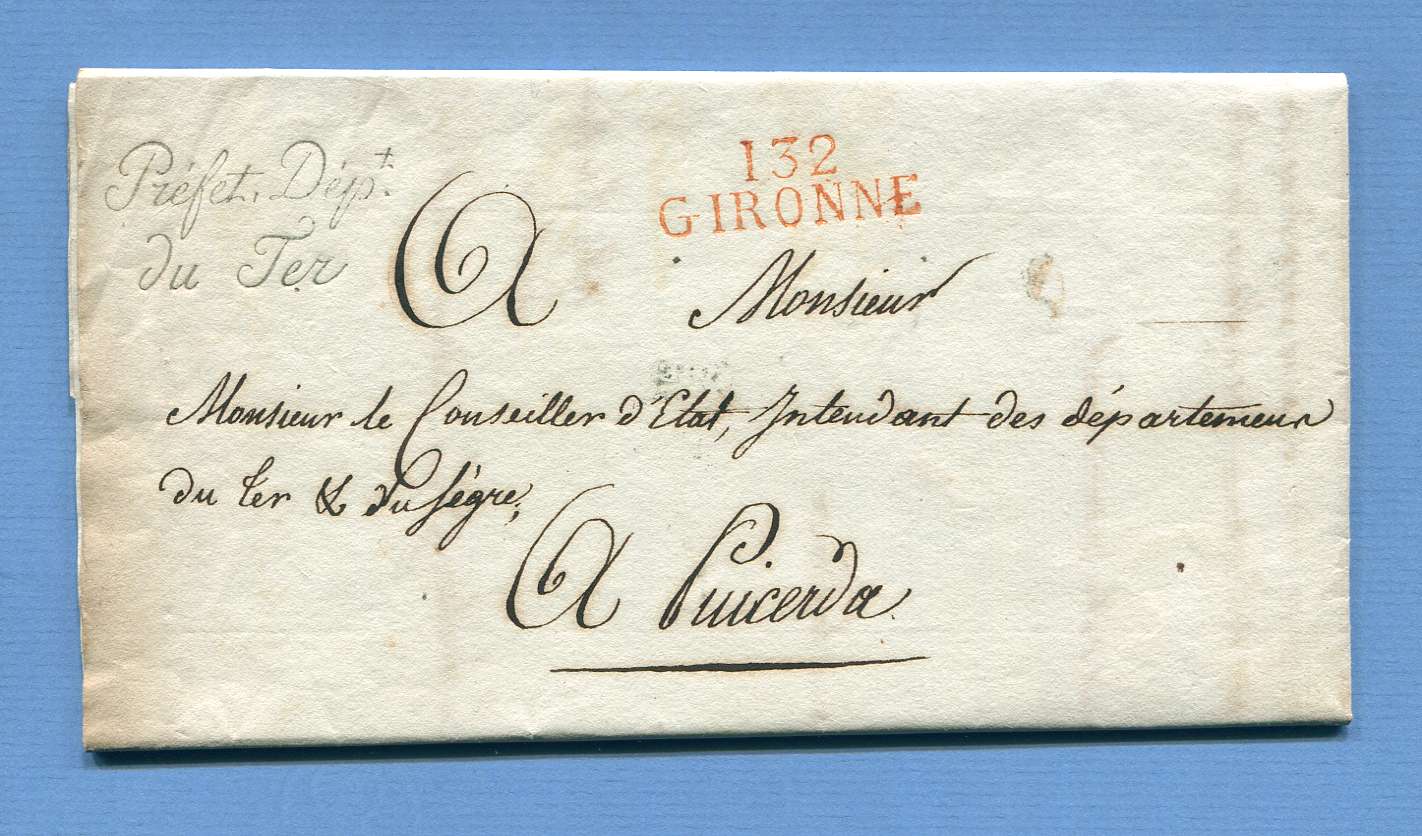 Préfet. Dépt.
du Ter
132
GIRONNE
A Monsieur
Monsieur le Conseiller d'Etat, Intendant des départemens
du Ter & du Sègre,
A Puicerda